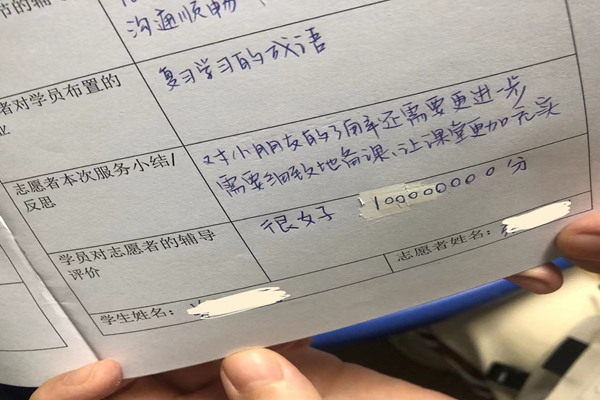 节的辅
沟通顺畅
者对学员布置的
业
复习学习的成语
志愿者本次服务小结/
反思
对小朋友的了解率还需要更进一步
需要细致地备课、让课堂更加充实
学员对志愿者的辅导
评价
很好 10000000分
学生姓名：
志愿者姓名：